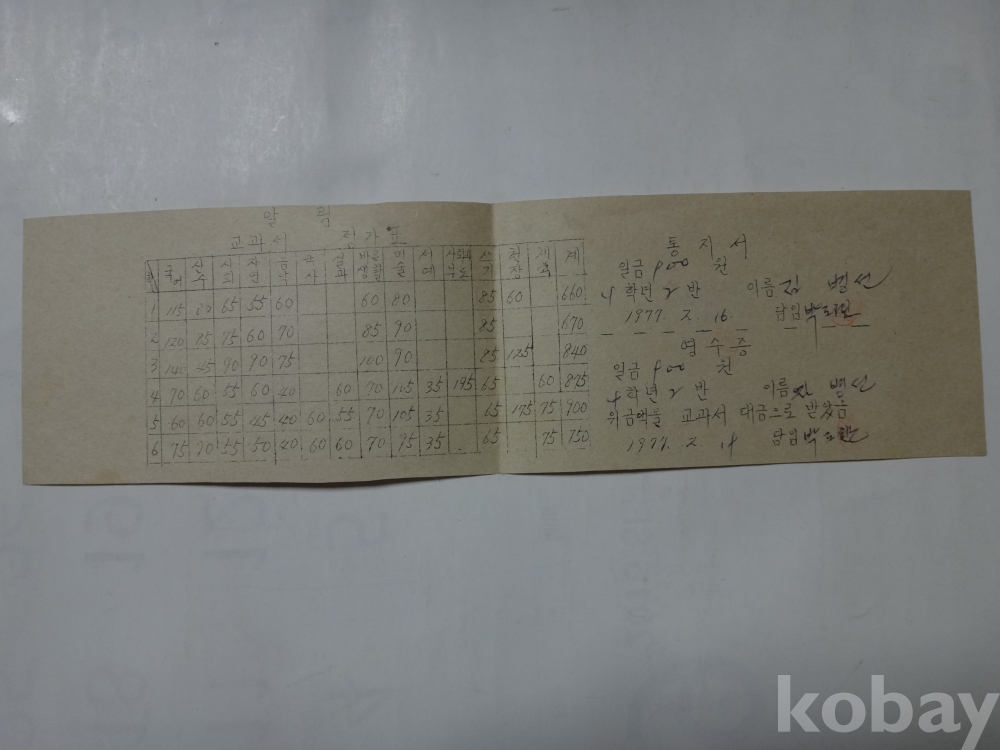 알림
교과서 정가표
국어 산수 사회 자연 음악 실과 바른생활 미술 서예 사회과부도 쓰기 계
1 115 65 55 60 60 80 85 60 660
2 120 85 75 60 70 85 90 85 670
3 140 45 90 90 75 100 90 85 125 840
4 70 60 55 60 40 60 70 105 35 195 65 60 875
5 60 60 55 45 40 60 55 70 105 35 65 175 75 900
6 75 70 55 50 40 60 60 70 95 35 65 75 750
통지서
일금 900 원
4학년 2반 이름 김병선
1977. 2. 16.
담임 박
영수증
일금 900 원
4학년 2반 이름 김병선
위금액을 교과서 대금으로 받았음
1977. 2 담임 박
kobay